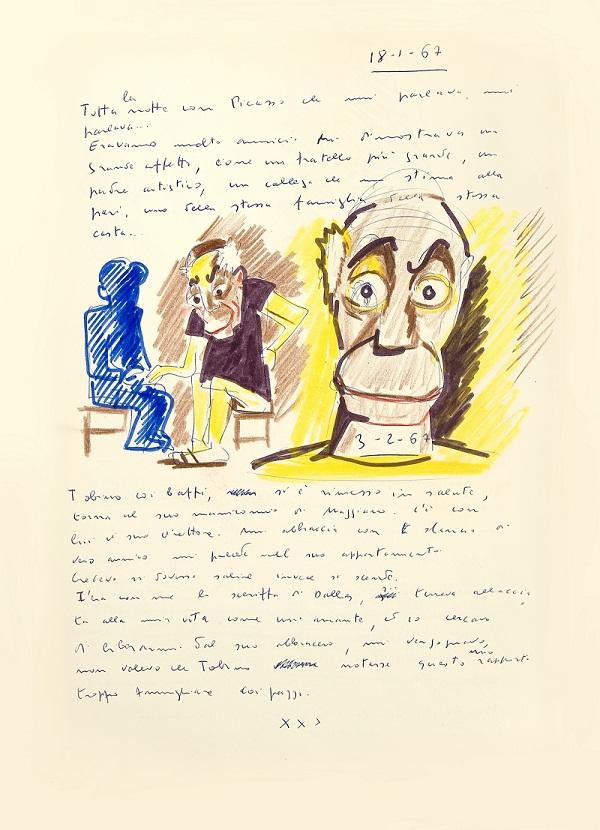 18-1-67
Tutta la notte con Picasso che mi parlava, mi
parlava...
Eravamo molto amici. Mi dimostrava un
grande affetto, come un fratello più grande, un
padre artistico, un collega che mi stima alla
pari, uno della stessa famiglia della stessa
casta...
3-2-67
Tobino coi baffi, si è rimesso in salute,
torna al suo manicomio di Maggiano. C'è con
lui il suo direttore. Mi abbraccia con slancio di
vero amico mi precede nel suo appartamento
Credevo si dovesse salire invece si scende.
Era con me la di Dallas, teneva allaccia
ta alla mia vita come un'amante, ed io cercavo
di liberarmi dal suo abbraccio, mi vergognavo,
non volevo che Tobino notasse questo mio rapporto
troppo famigliare coi pazzi.
X X